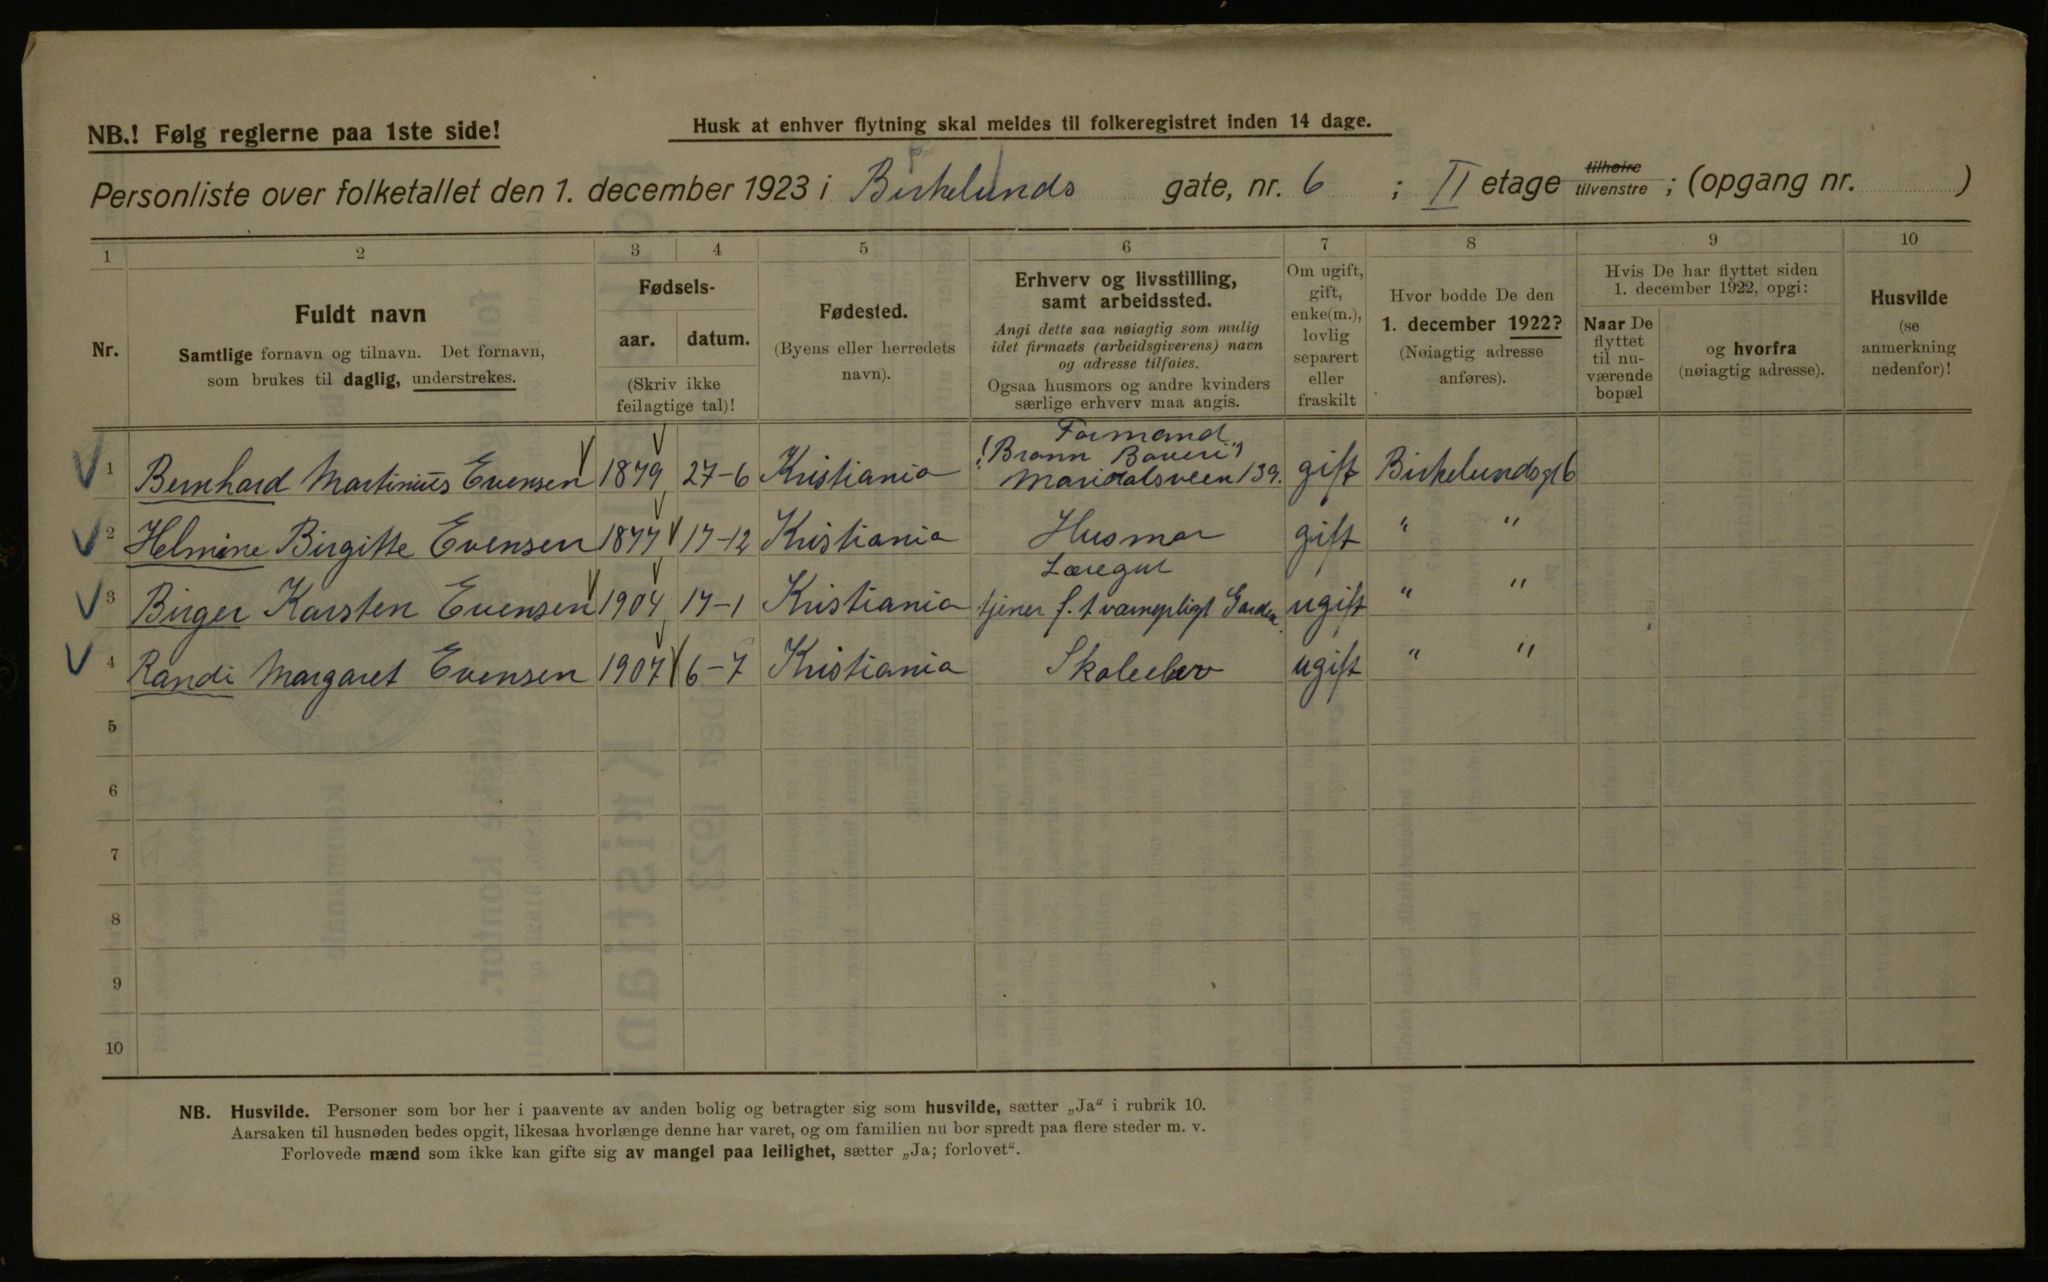 NB.! Følg reglerne paa 1ste side!
Husk at enhver flytning skal meldes til folkeregistret inden 14 dage.
Personliste over folketallet den 1. december 1923 i Birkelunds gate, nr. 6 ; II etage tilhøire tilvenstre ; (opgang nr. )
1 2 3 4 5 6 7 8 9 10
Nr.
Fuldt navn
Samtlige fornavn og tilnavn. Det fornavn,
som brukes til daglig, understrekes.
Fødsels-
aar. datum.
(Skriv ikke
feilagtige tal)!
Fødested.
(Byens eller herredets
navn).
Erhverv og livsstilling,
samt arbeidssted.
Angi dette saa nøiagtig som mulig
idet firmaets (arbeidsgiverens) navn
og adresse tilføies.
Ogsaa husmors og andre kvinders
særlige erhverv maa angis.
Om ugift,
gift,
enke(m.),
lovlig
separert
eller
fraskilt
Hvor bodde De den
1. december 1922?
(Nøiagtig adresse
anføres).
Hvis De har flyttet siden
1. december 1922, opgi:
Naar De
flyttet
til nu-
værende
bopæl
og hvorfra
(nøiagtig adresse).
Husvilde
(se
anmerkning
nedenfor)!
Formand
"Brann Boveri"
1 Bernhard Martinius Evensen 1879 27-6 Kristiania Maridalsveen 139. gift Birkelundsgt 6
2 Helmine Birgitte Evensen 1877 17-12 Kristiania Husmor gift " "
Læregut
3 Birger Karsten Evensen 1904 17-1 Kristiania tjener f. t værnepligt Garden ugift " "
4 Randi Margaret Evensen 1907 6-7 Kristiania Skoleelev ugift " "
5
6
7
8
9
10
NB. Husvilde. Personer som bor her i paavente av anden bolig og betragter sig som husvilde, sætter „Ja“ i rubrik 10.
Aarsaken til husnøden bedes opgit, likesaa hvorlænge denne har varet, og om familien nu bor spredt paa flere steder m. v.
Forlovede mænd som ikke kan gifte sig av mangel paa leilighet, sætter „Ja; forlovet“.